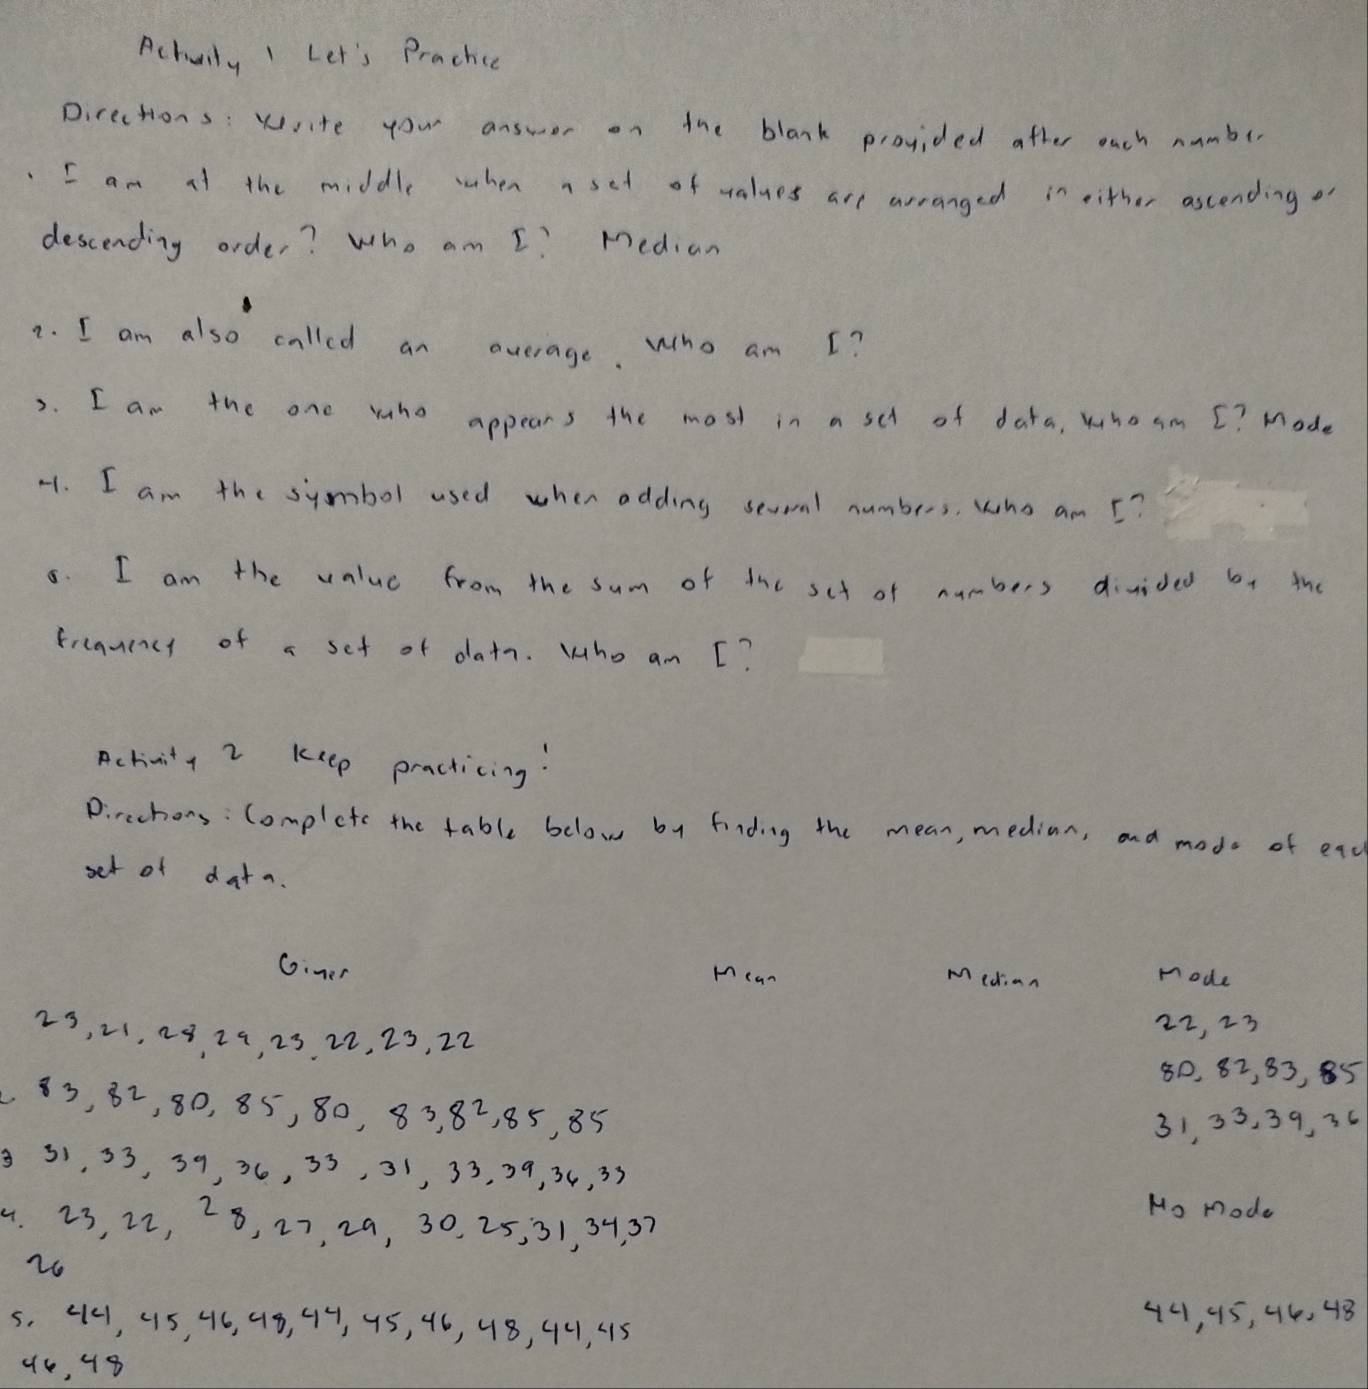 Activity 1 Let's Practice
Directions: Write your answer on the blank provided after each number
. I am at the middle when a set of values are arranged in either ascending or
descending order? Who am I? Median
2. I am also called an average. Who am I?
3. I am the one who appears the most in a set of data, who am I? Mode
4. I am the symbol used when adding several numbers. Who am I?
5. I am the value from the sum of the set of numbers divided by the
frequency of a set of data. Who am I?
Activity 2 Keep practicing!
Directions: Complete the table below by finding the mean, median, and mode of each
set of data.
Given Mean Median Mode
23, 21, 28, 29, 23, 22, 23, 22 22, 23
2 83, 82, 80, 85, 80, 83, 82, 85, 85 80, 82, 83, 85
3 31, 33, 39, 36, 33, 31, 33, 39, 36, 33 31, 33, 39, 36
4. 23, 22, 28, 27, 29, 30, 25, 31, 34, 37 No Mode
26
5. 44, 45, 46, 48, 44, 45, 46, 48, 44, 45 44, 45, 46, 48
46, 48